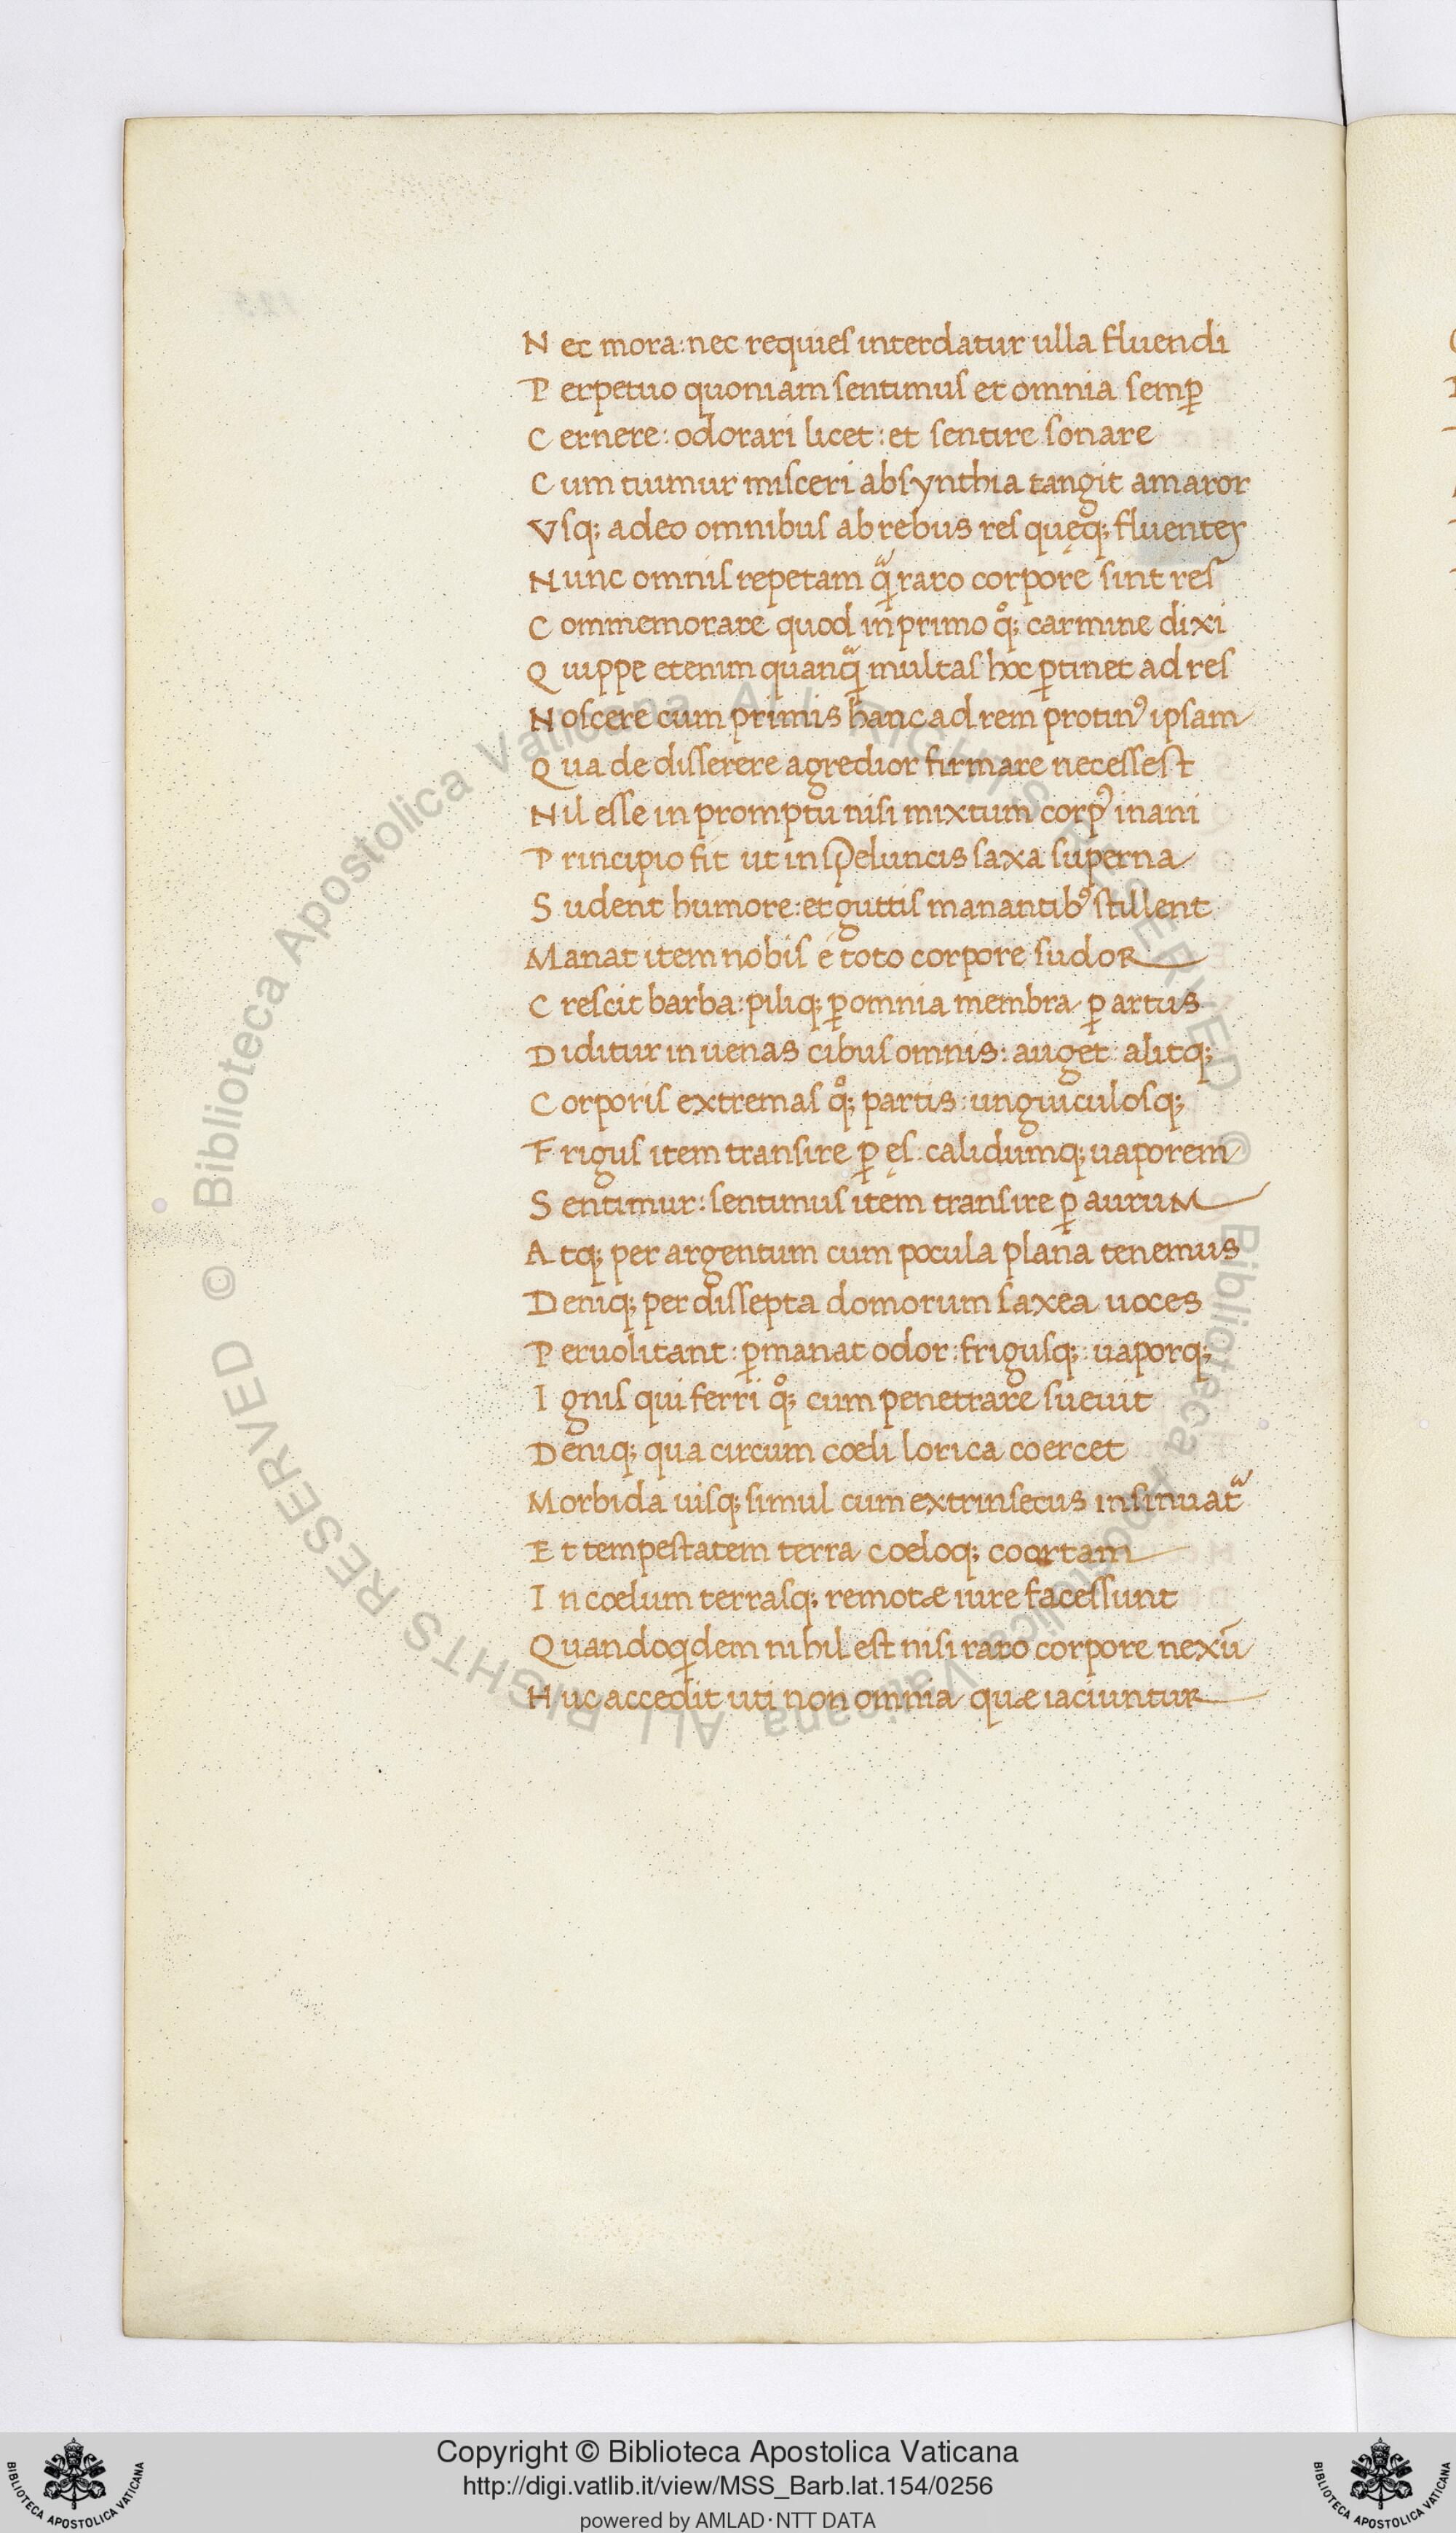 N ec mora: nec requies interdatur ulla fluendi
P erpetuo quoniam sentimus et omnia semꝑ
C ernere: odorari licet: et sentire sonare
C um tuimur misceri absynthia tangit amaror
Vsq; adeo omnibus ab rebus res quęq; fluenter
N unc omnis repetam q̃ raro corpore sint res
C ommemorare quod in primo qͦ; carmine dixi
Q uippe etenim quanq̃ multas hoc ꝑtinet ad res
N oscere cum primis hanc ad rem protinꝰ ipsam
Q ua de disserere agredior firmare necessest
N il esse in promptu nisi mixtum corpꝰ inani
P rincipio fit ut in speluncis saxa superna
S udent humore: et guttis manantibꝰ stillent
Manat item nobis é toto corpore sudor
C rescit barba: piliq; ꝑ omnia membra ꝑ artus
D iditur in uenas cibus omnis: auget: alitq;
C orporis extremas qͦ; partis: unguiculosq;
F rigus item transire ꝑ ęs: calidumq; uaporem
S entimur: sentimus item transire ꝑ aurum
A tq; per argentum cum pocula plana tenemus
D eniq; per dissepta domorum saxea uoces
P eruolitant: ꝑmanat odor: frigusq;: uaporq;
I gnis qui ferri qͦ; cum penetrare sueuit
D eniq; qua circum cœli lorica coercet
Morbida uisq; simul cum extrinsecus insinuat᷑
E t tempestatem terra cœloq; coortam
I n cœlum terrasq; remotæ iure facessunt
Quandoqdem nihil est nisi raro corpore nexū
H uc accedit uti non omnia quæ iaciuntur
Biblioteca Apostolica Vaticana ALL RIGHTS RESERVED ©
Biblioteca Apostolica Vaticana ALL RIGHTS RESERVED ©
Copyright © Biblioteca Apostolica Vaticana
http://digi.vatlib.it/view/MSS_Barb.lat.154/0256
powered by AMLAD·NTT DATA
BIBLIOTECA APOSTOLICA VATICANA
BIBLIOTECA APOSTOLICA VATICANA